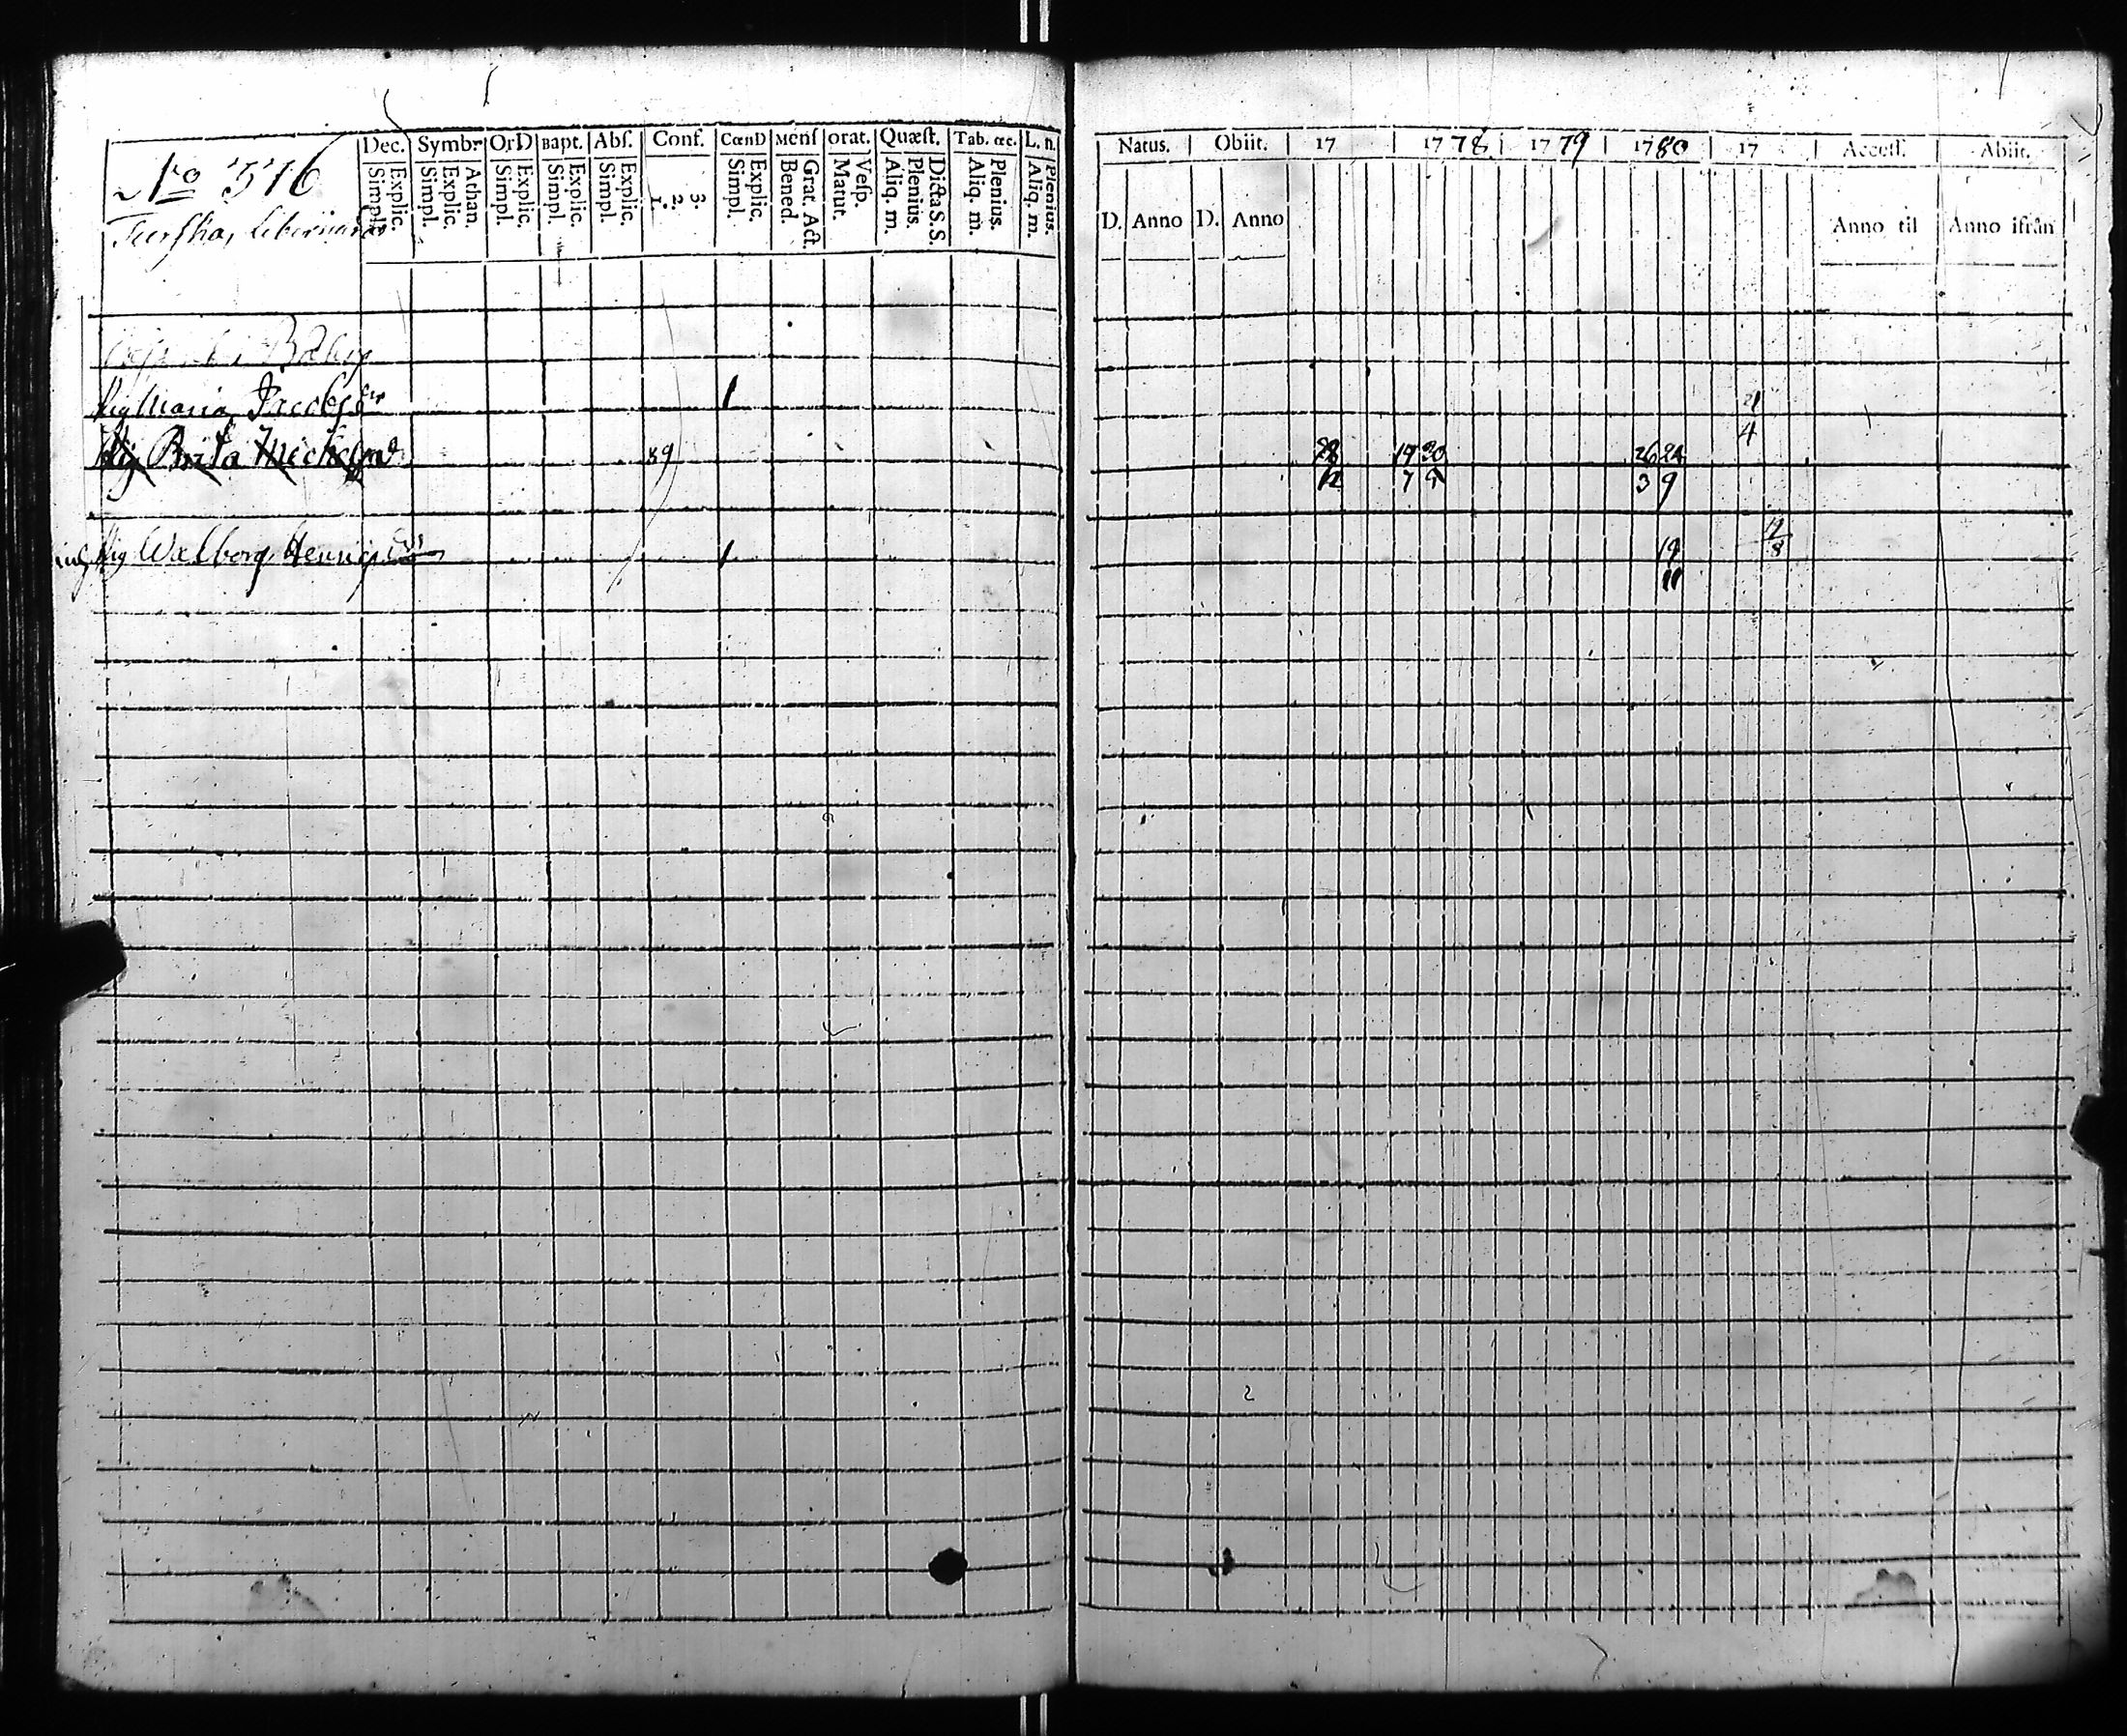 No 376
Dec. Symbr OrD Bapt. Abs. Conf. CœnD Mens orat. Quæst. Tab. œc. L. n.
Explic. Simpl. Athan. Explic. Simpl. Explic. Simpl. Explic. Simpl. Explic. Simpl. 3. 2. 1. Explic. Simpl. Grat. Act. Bened. Vesp. Matut. Dicta S.S. Plenius. Aliq. m. Plenius. Aliq. m. Plenius. Aliq. m.
Pig Maria Jacobsdr 1
Pig Brita Mickelsd 89
Pig Walborg Henricsdr 1
Natus. Obiit. 17 1778 1779 1780 17 Access. Abiit.
D. Anno D. Anno Anno til Anno ifrån
21
4
28 19 30 26 24
12 7 9 3 9
19
8
19
11